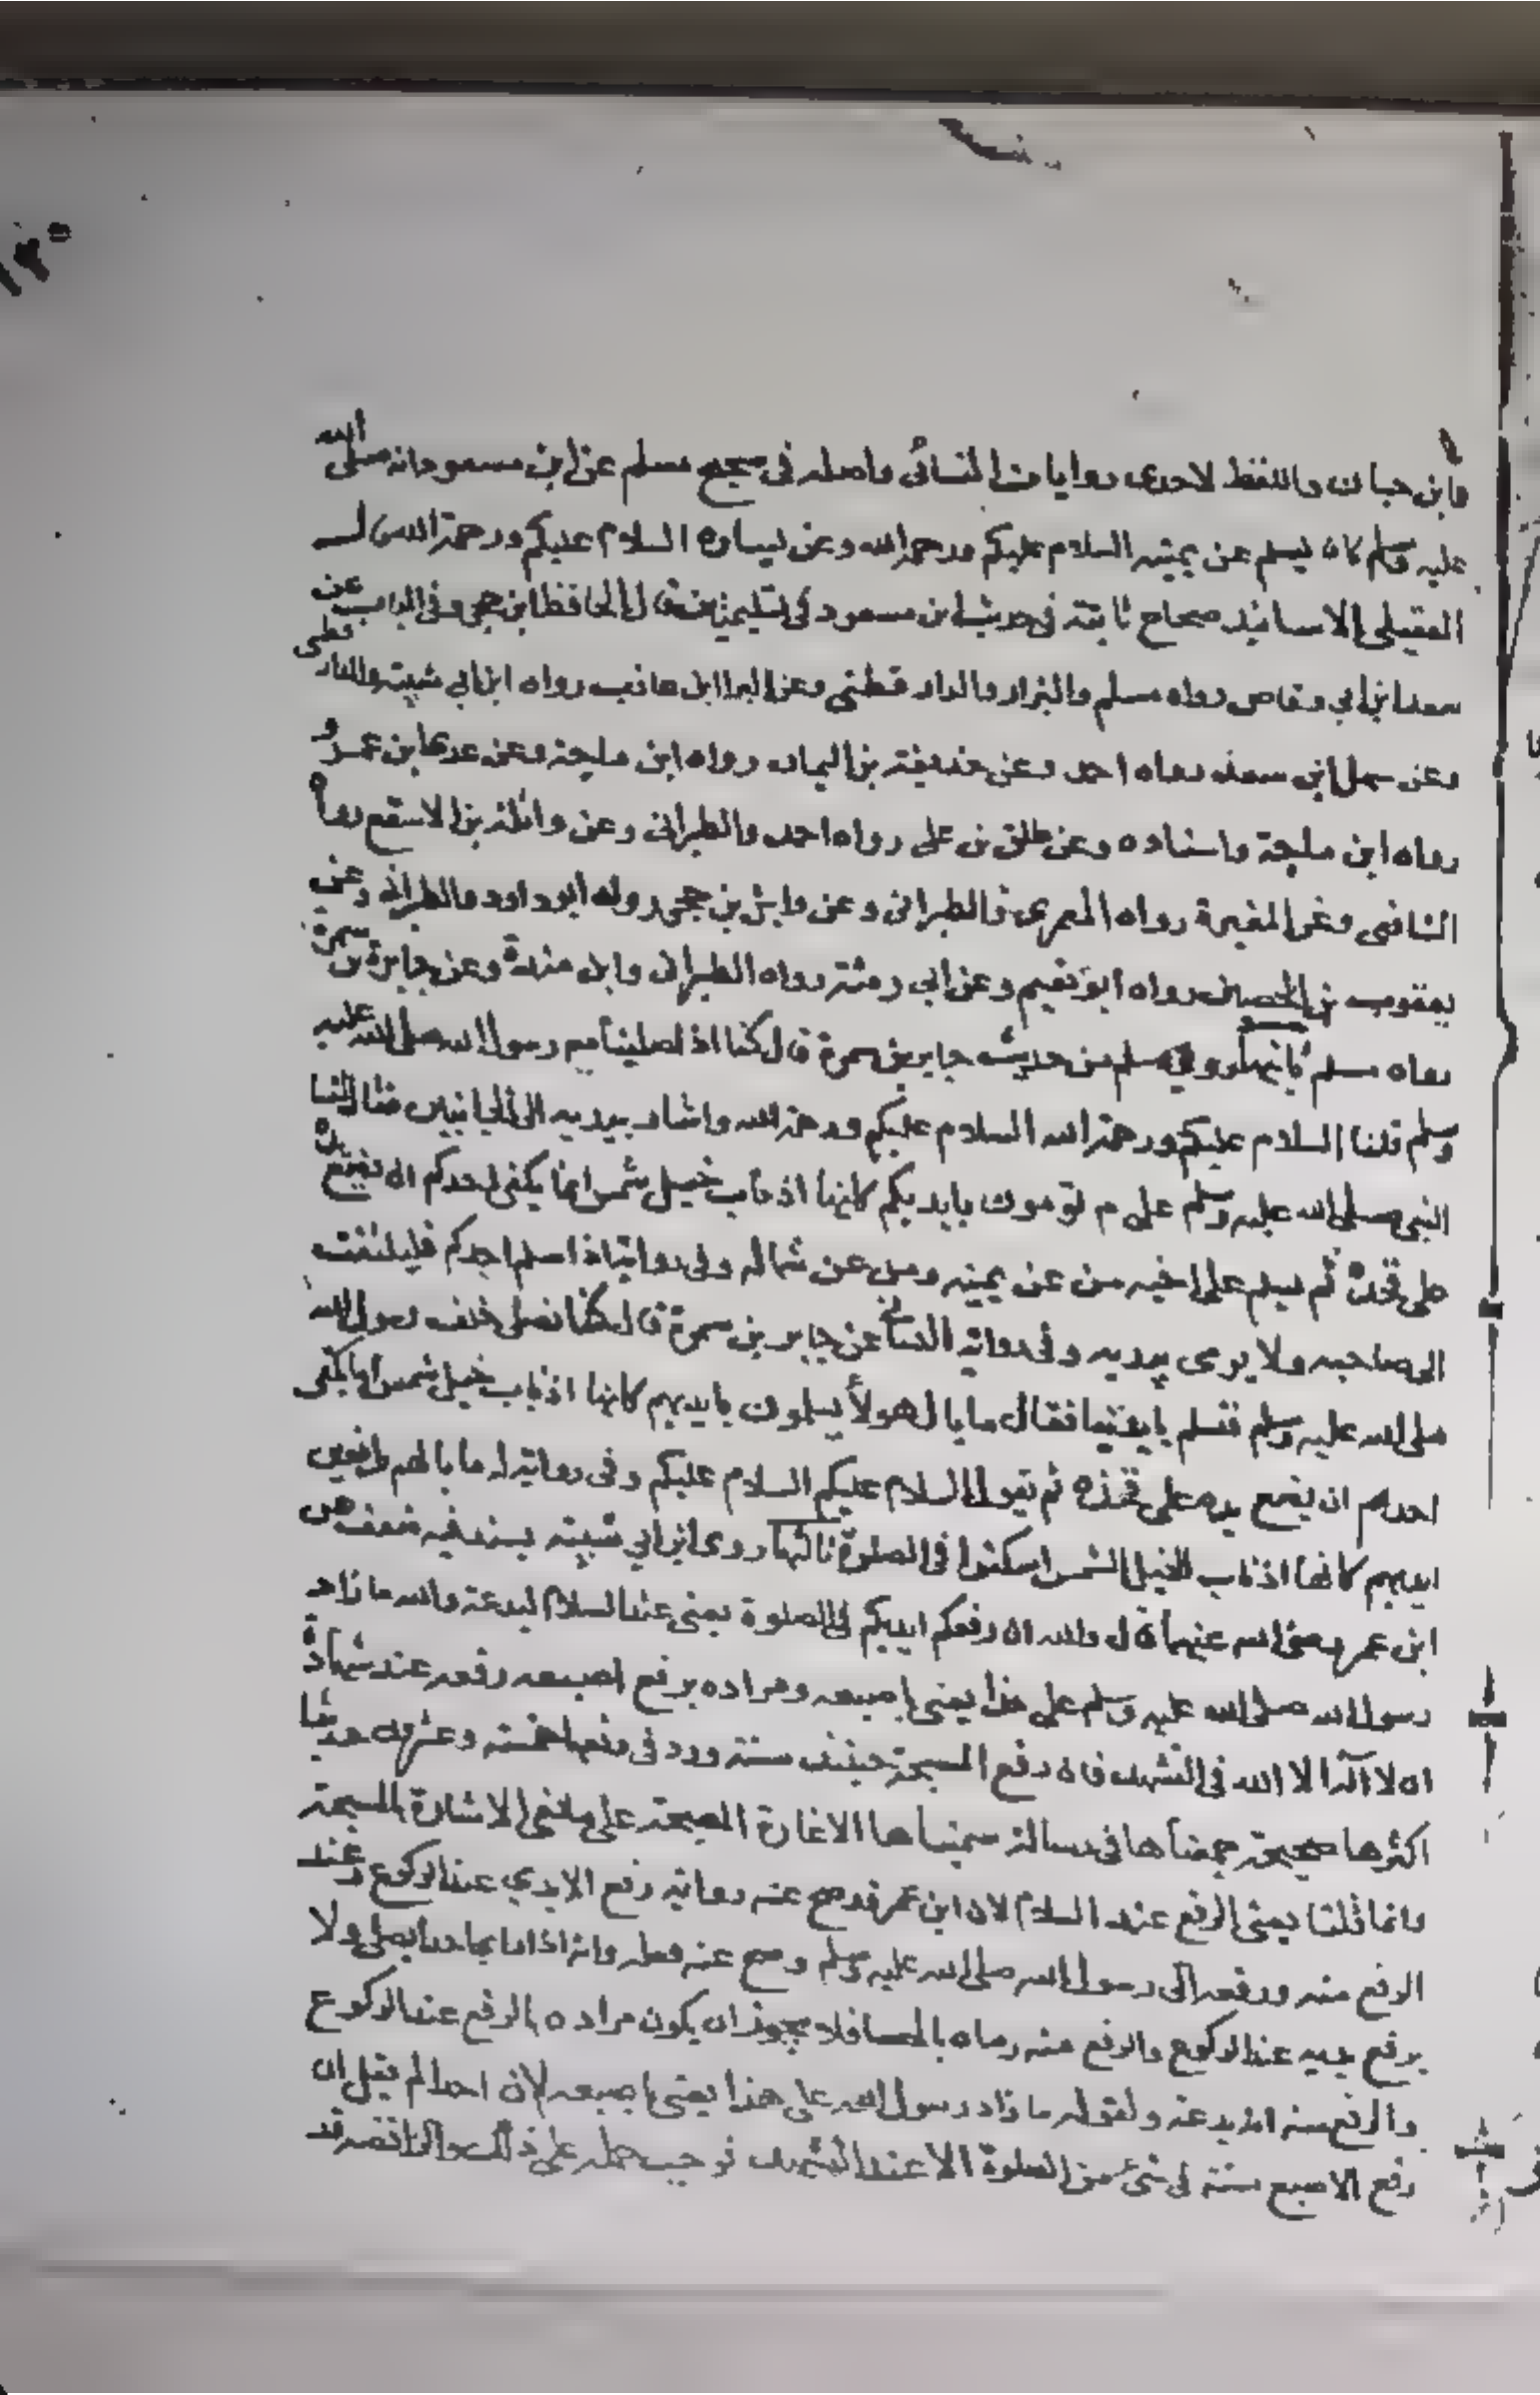 وابن حبان واللفظ لاحدى روايات النسائى واصله فى صحيح مسلم عن ابن مسعود انه صلى الله
عليه وسلم كان يسلم عن يمينه السلام عليكم ورحمة الله وعن يساره السلام عليكم ورحمة الله
العقيلى الاسانيد صحاح ثابتة فى حديث ابن مسعود فى تسليمتين قال الحافظ ابن حجر وفى الباب عن
سعد ابن ابي وقاص رواه مسلم والبزار والدار قطنى وعن البرا ابن عازب رواه ابن ابي شيبة والدار قطى
وعن سهل ابن سعد رواه احمد وعن حذيفة بن اليمان رواه ابن ماجة وعن عدى ابن عمرو
رواه ابن ماجة واسناده وعن طلق بن على رواه احمد والطبرانى وعن واثلة بن الاسقع رواه
الشافعى وعن المغيرة رواه المعمرى والطبرانى وعن وائل بن حجر رواه ابو داود والطبرانى وعن
يعقوب بن الحصين رواه ابو نعيم وعن ابي رمثة رواه الطبرانى وابن مندة وعن جابرة بن سمرة
رواه مسلم ثانيها روى مسلم من حديث جابر بن سمرة قال كنا اذا صلينا مع رسول الله صلى الله عليه
وسلم قلنا السلام عليكم ورحمة الله السلام عليكم ورحمة الله واشار بيديه الى الجانبين فقال لنا
النبى صلى الله عليه وسلم على م تومون بايديكم كانها اذناب خيل شمس انما يكفى احدكم ان يضع يده
على فخذه ثم يسلم على اخيه من عن يمينه ومن عن شماله وفى رواية اذا سلم احدكم فليلتفت
الى صاحبه ولا يومى بيديه وفى رواية النسائى عن جابر بن سمرة قال كنا نصلى خلف رسول الله
صلى الله عليه وسلم فنسلم بايدينا فقال ما بال هولأ يسلمون بايديهم كانها اذناب خيل شمس اما يكفى
احدهم ان يضع يده على فخذه ثم يقول السلام عليكم السلام عليكم وفى رواية له ما بالهم رافعين
ايديهم كانها اذناب الخيل الشمس اسكنوا فى الصلوة ثالثها روى ابن ابي شيبة بسند فيه ضعف عن
ابن عمر رضى الله عنهما قال والله ان رفعكم ايديكم فى الصلوة يعنى عند السلام لبدعة والله ما زاد
رسول الله صلى الله عليه وسلم على هذا يعنى باصبعه ومراده برفع اصبعه رفعه عند شهادة
ان لا اله الا الله فى التشهد فان رفع المسبحة حينئذ سنة ورد فى رفعها خمسة وعشرون حديثا
اكثرها صحيحة جمعناها فى رسالة سميناها الاغارة المصبحة على مانعى الاشارة بالمسبحة
وانما قلنا يعنى الرفع عند السلام لان ابن عمر قد صح عنه رواية رفع الايدي عند الركوع وعند
الرفع منه ورفعه الى رسول الله صلى الله عليه وسلم وصح عنه فعله وانه اذا راى احدا يصلى ولا
يرفع يديه عند الركوع والرفع منه رماه بالحصا فلا يجوز ان يكون مراده بالرفع عند الركوع
والرفع منه انه بدعة ولقوله ما زاد رسول الله على هذا يعنى باصبعه لان احدا لم يقل ان
رفع الاصبع سنة فى شئ من الصلوة الا عند التشهد فوجب حمله على ذلك والرافضة قد